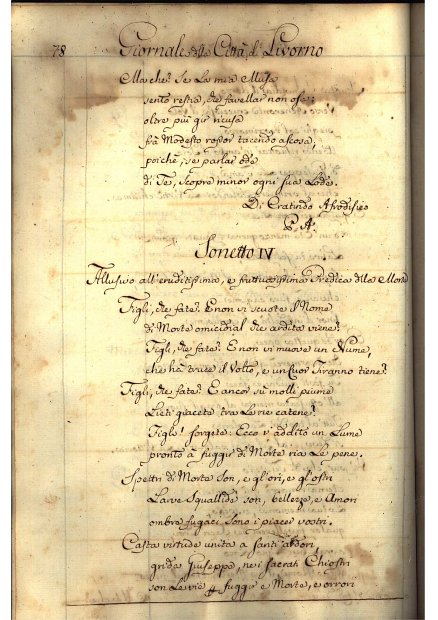 78 Giornale della Città di Livorno
Ma che? Se la mia Musa
sento restia, che favellar non osa;
oltre più gir ricusa
frà Modesto rossor tacendo ascosa,
poichè, se parlar ode
di Te, scopre minor ogni sua Lode.
Di Eratindo Afrodiseo
P. A.
Sonetto IV
Allusivo all'eruditissima, e fruttuosissima Predica della Morte
Figli, che fate? E non vi scuote il Nome
di Morte omicidial che ardita viene?
Figli, che fate? E non vi muove un Nume,
che hà truce il Volto, e un Cuor Tiranno tiene?
Figli, che fate? E ancor sù molli piume
Lieti giacete tra Le rie catene?
Figli! sorgete: Ecco v'addito un Lume
pronto à fuggir di Morte ria Le pene.
Spettri di Morte son, e gl'ori, e gl'ostri
Larve Squallide son, bellezze, e Amori
ombre fugaci sono i piacer vostri.
Casta virtude unita a santi ardori,
grida Giuseppe, nei sacrati Chiostri
son Le vie p fuggir e Morte, e orrori